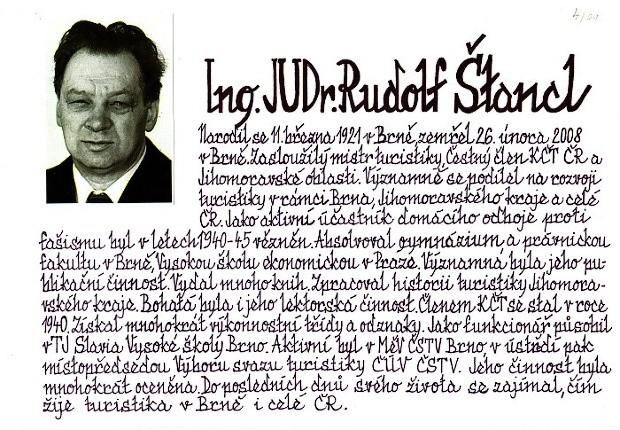 4/01
Ing. JUDr. Rudolf Štancl
Narodil se 11. března 1921 v Brně, zemřel 26. února 2008
v Brně. Zasloužilý mistr turistiky, Čestný člen KČT ČR a
Jihomoravské oblasti. Významně se podílel na rozvoji
turistiky v rámci Brna, Jihomoravského kraje a celé
ČR. Jako aktivní účastník domácího odboje proti
fašismu byl v letech 1940-45 vězněn. Absolvoval gymnázium a právnickou
fakultu v Brně, Vysokou školu ekonomickou v Praze. Významná byla jeho pu-
blikační činnost. Vydal mnoho knih. Zpracoval historii turistiky Jihomora-
vského kraje. Bohatá byla i jeho lektorská činnost. Členem KČT se stal v roce
1940. Získal mnohokrát výkonnostní třídy a odznaky. Jako funkcionář působil
v TJ Slavia Vysoké školy Brno. Aktivní byl v MěV ČSTV Brno v ústředí pak
místopředsedou Výboru svazu turistiky ČÚV ČSTV. Jeho činnost byla
mnohokrát oceněna. Do posledních dnů svého života se zajímal, čím
žije turistika v Brně i celé ČR.